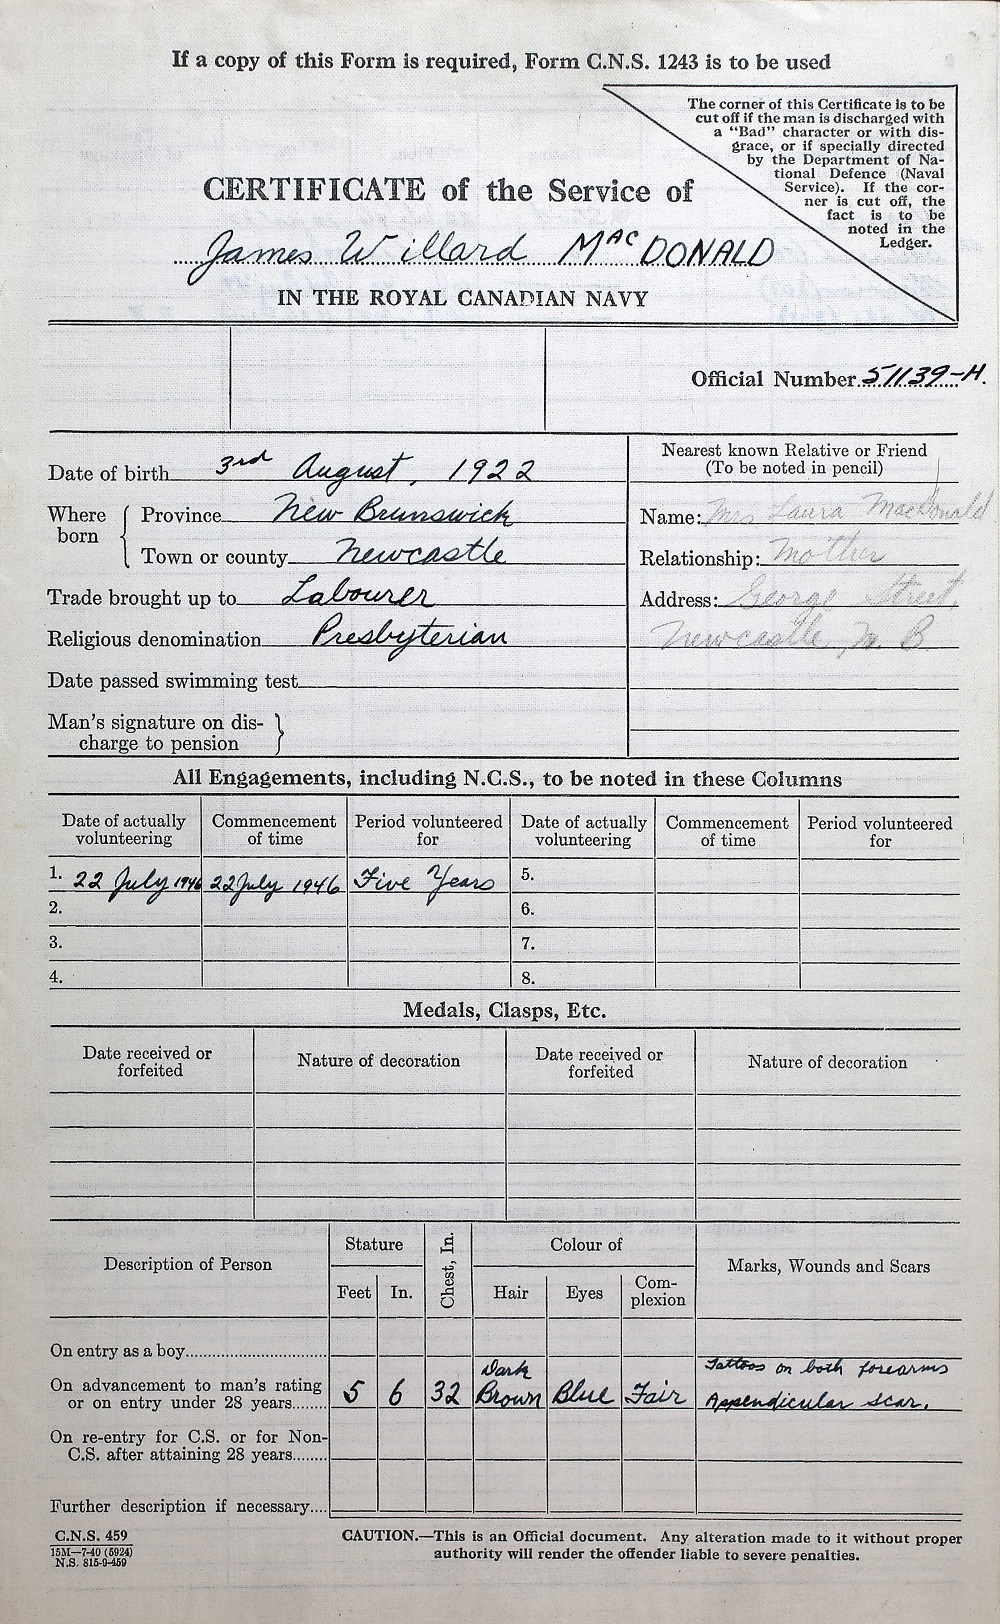 If a copy of this Form is required, Form C.N.S. 1243 is to be used
The corner of this Certificate is to be
cut off if the man is discharged with
a "Bad" character or with dis-
grace, or if specially directed
by the Department of Na-
tional Defence (Naval
Service). If the cor-
ner is cut off, the
fact is to be
noted in the
Ledger.
CERTIFICATE of the Service of
James Willard MacDONALD
IN THE ROYAL CANADIAN NAVY
Official Number 51139-H.
Date of birth 3rd August, 1922
Where born
Province New Brunswick
Town or county Newcastle
Trade brought up to Labourer
Religious denomination Presbyterian
Date passed swimming test
Man's signature on dis-
charge to pension
Nearest known Relative or Friend
(To be noted in pencil)
Name: Mrs Laura MacDonald
Relationship: Mother
Address: George Street,
Newcastle, N. B.
All Engagements, including N.C.S., to be noted in these Columns
Date of actually volunteering Commencement of time Period volunteered for Date of actually volunteering Commencement of time Period volunteered for
1. 22 July 1946 22 July 1946 Five Years 5.
2. 6.
3. 7.
4. 8.
Medals, Clasps, Etc.
Date received or forfeited Nature of decoration Date received or forfeited Nature of decoration
Description of Person Stature Chest, In. Colour of Marks, Wounds and Scars
Feet In. Hair Eyes Com-plexion
On entry as a boy
On advancement to man's rating
or on entry under 28 years 5 6 32 Dark Brown Blue Fair Tattoos on both forearms
Appendicular scar.
On re-entry for C.S. or for Non-
C.S. after attaining 28 years
Further description if necessary
C.N.S. 459
15M—7-40 (5924)
N.S. 815-9-459
CAUTION.—This is an Official document. Any alteration made to it without proper
authority will render the offender liable to severe penalties.